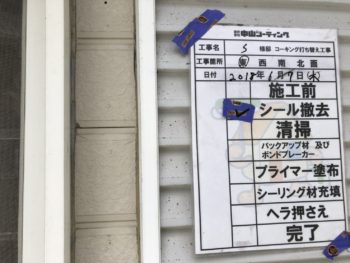 株式会社 中山コーティング
工事名 S 様邸 コーキング打ち替え工事
工事箇所 東 西 南 北 面
日付 2018年 6月 7日(木)
施工前
シール撤去
清掃
バックアップ材 及び
ボンドブレーカー
プライマー塗布
シーリング材充填
ヘラ押さえ
完了